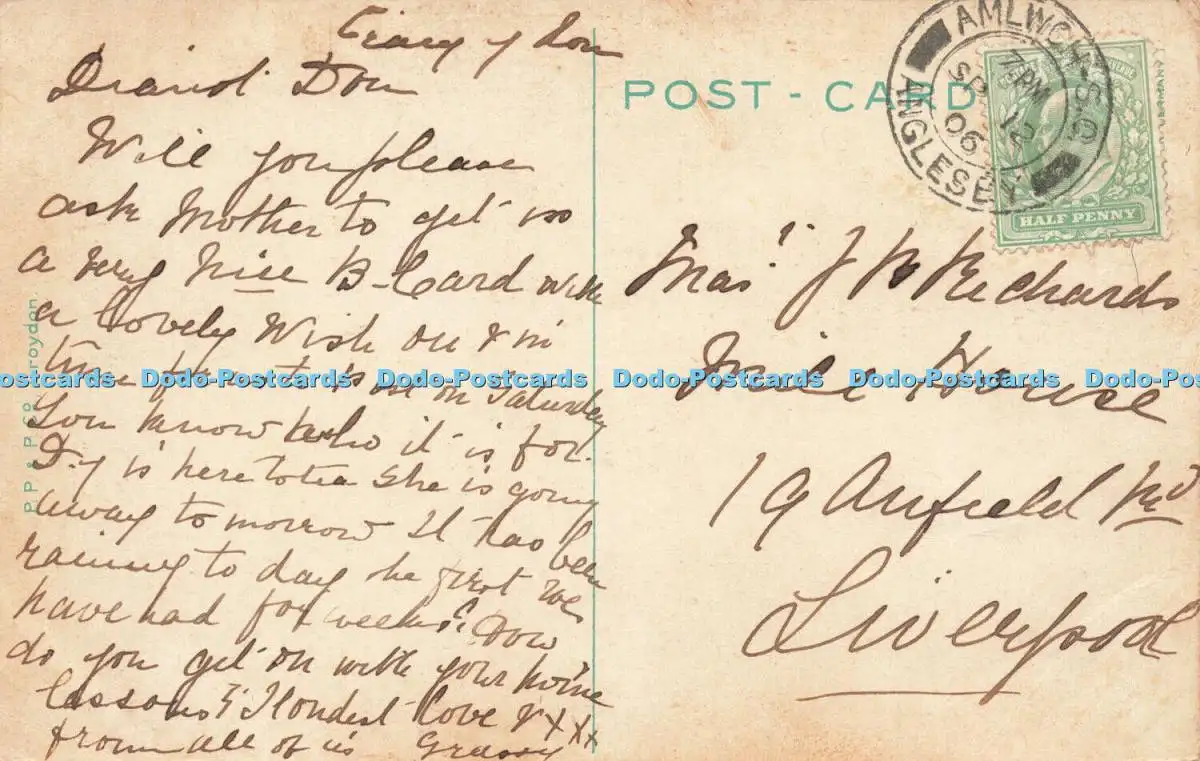 Craig y Don
Dearest Don
Will you please
ask Mother to get us
a very Nice B-Card with
a lovely Wish on & in
time for us on Saturday
You know who it is for.
is here to tea She is going
away to morrow It has been
raining to day the first we
have had for weeks. How
do you get on with your home
lessons? Fondest love & xxx
from all of us
POST - CARD
AMLWCH. S.O
ANGLESEY
7 PM
SP 12
06
HALF PENNY
Mas. J Richards
House
19 Anfield Rd
Liverpool
P P & P Co. Croydon.
Dodo-Postcards Dodo-Postcards Dodo-Postcards Dodo-Postcards Dodo-Postcards